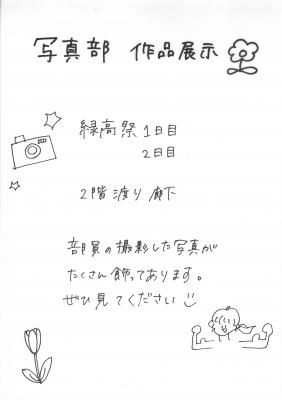 写真部 作品展示
緑高祭 1日目
2日目
2階渡り廊下
部員の撮影した写真が
たくさん飾ってあります。
ぜひ見てください